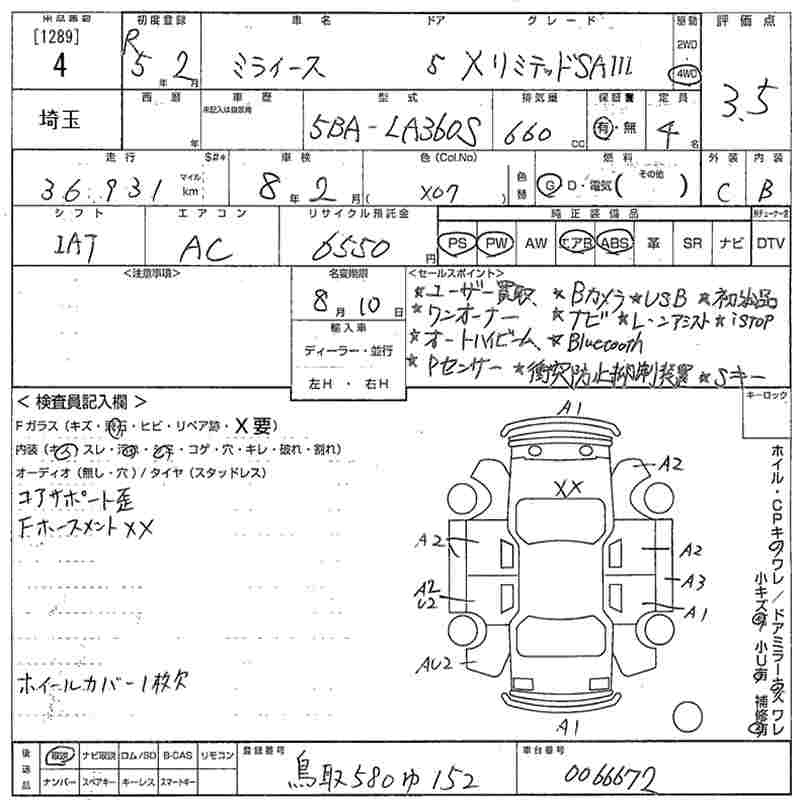 出品番号 初度登録 車名 ドア グレード 駆動 評価点
[1289] 4 R5年2月 ミライース 5 XリミテッドSAIII 2WD 4WD 3.5
埼玉 西暦 年 車歴 未記入は自家用 型式 5BA-LA360S 排気量 660 CC 保証書 有・無 定員 4名
走行 S#* 36,931 マイル km 車検 8年2月 色(Col.No) ( X07 ) 色替 燃料 G D・電気 ( その他 ) 外装 C 内装 B
シフト IAT エアコン AC リサイクル預託金 6550円 純正装備品 PS PW AW エアB ABS 革 SR ナビ DTV
<注意事項>
名変期限 8月10日
輸入車
ディーラー・並行
左H ・ 右H
<セールスポイント>
★ユーザー買取、★Bカメラ★USB ★初出品
★ワンオーナー ★ナビ★レーンアシスト★iSTOP
★オートハイビーム、★Bluetooth
★Pセンサー ★衝突防止抑制装置 ★Sキー
キーロック
< 検査員記入欄 >
Fガラス(キズ・飛石・ヒビ・リペア跡・X要)
内装(キズ・スレ・汚れ・シミ・コゲ・穴・キレ・破れ・割れ)
オーディオ(無し・穴)/タイヤ(スタッドレス)
コアサポート歪
FホースメントXX
ホイールカバー1枚欠
A1
A2
XX
A2
A2
A3
A2
U2
A1
AU2
A1
ホイル・CPキズ ワレ / ドアミラーキズ ワレ
小キズ有 小U有 補修有
後送品 取説 ナビ取説 ロム/SD B-CAS リモコン
ナンバー スペアキー キーレス スマートキー
登録番号 鳥取580ゆ152
車台番号 0066672